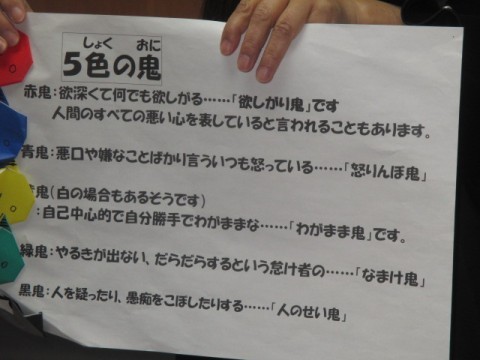 しょく おに
5色の鬼
赤鬼:欲深くて何でも欲しがる……「欲しがり鬼」です
人間のすべての悪い心を表していると言われることもあります。
青鬼:悪口や嫌なことばかり言ういつも怒っている……「怒りんぼ鬼」
鬼(白の場合もあるそうです)
:自己中心的で自分勝手でわがままな……「わがまま鬼」です。
緑鬼:やるきが出ない、だらだらするという怠け者の……「なまけ鬼」
黒鬼:人を疑ったり、愚痴をこぼしたりする……「人のせい鬼」